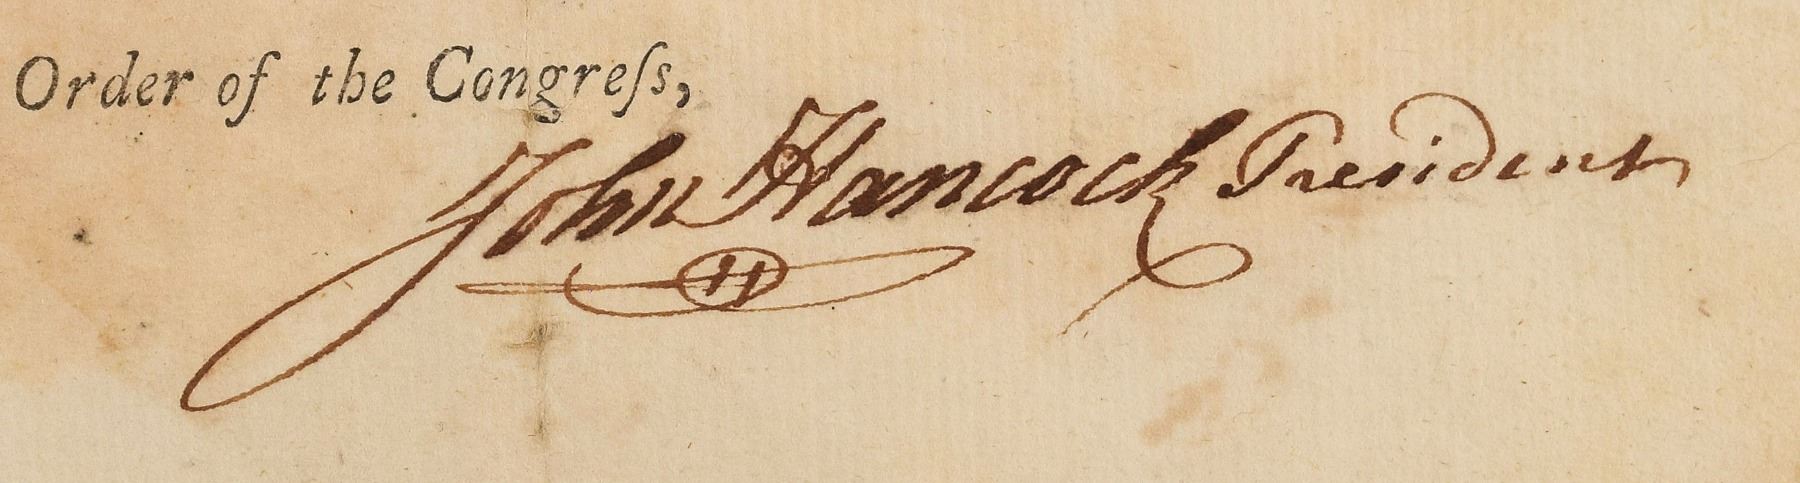 Order of the Congreſs,
John Hancock President